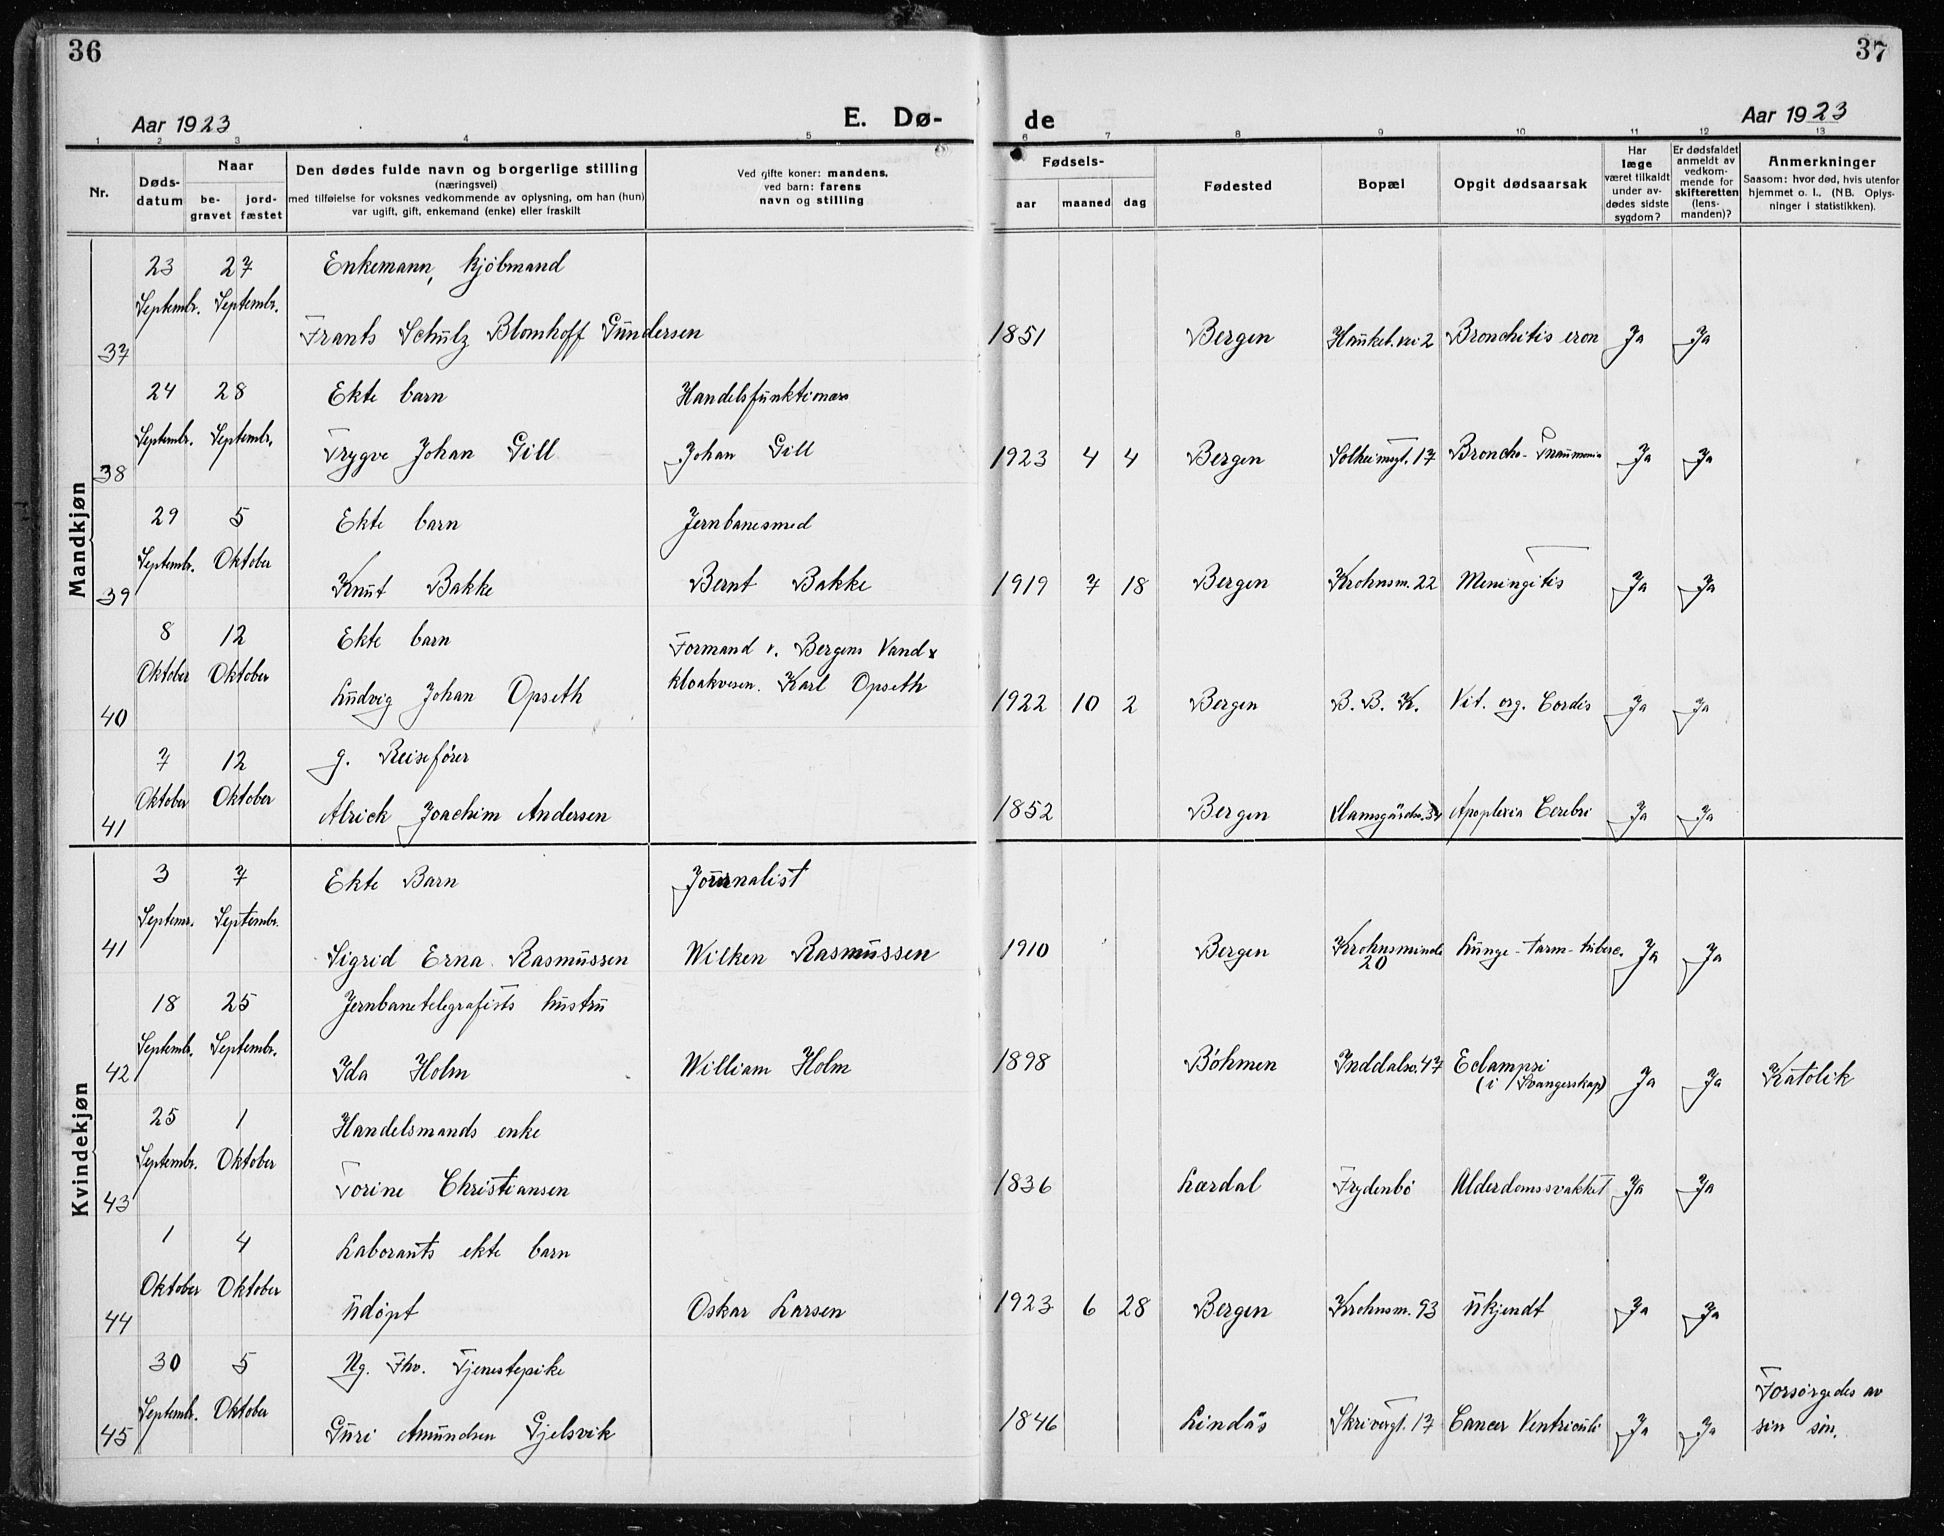 36
37
Aar 1923
E. Dø-
de
Aar 1923
1 2 3 4 5 6 7 8 9 10 11 12 13
Nr.
Døds-
datum
Naar
be-
gravet
jord-
fæstet
Den dødes fulde navn og borgerlige stilling
(næringsvei)
med tilføielse for voksnes vedkommende av oplysning, om han (hun)
var ugift, gift, enkemand (enke) eller fraskilt
Ved gifte koner: mandens,
ved barn: farens
navn og stilling
Fødsels-
aar maaned dag
Fødested
Bopæl
Opgit dødsaarsak
Har
læge
været tilkaldt
under av-
dødes sidste
sygdom?
Er dødsfaldet
anmeldt av
vedkom-
mende for
skifteretten
(lens-
manden)?
Anmerkninger
Saasom: hvor død, hvis utenfor
hjemmet o. l. (NB. Oplys-
ninger i statistikken).
Mandkjøn
23 27 Enkemann, kjöbmand
Septembr. Septembr.
37 Frants Schulz Blomhoff Gundersen 1851 Bergen Hauket.vei 2 Bronchitis cron Ja Ja
24 28 Ekte barn Handelsfunktionær
Septembr. Septembr.
38 Trygve Johan Gill Johan Gill 1923 4 4 Bergen Solheimsgt. 17 Broncho-Pnaumonia Ja Ja
29 5 Ekte barn Jernbanesmed
Septembr. Oktober
39 Knut Bakke Bernt Bakke 1919 7 18 Bergen Krohnsm. 22 Meningitis Ja Ja
8 12 Ekte barn Formand v. Bergens Vand &
Oktober Oktober kloakvesen. Karl Opseth
40 Ludvig Johan Opseth 1922 10 2 Bergen B. B. K. Vit. org. Cordis Ja Ja
7 12 g. Reisefører
Oktober Oktober
41 Alrick Joachim Andersen 1852 Bergen Apoplexia Cerebri Ja Ja
Kvindekjøn
3 7 Ekte Barn Journalist
Septemr. Septembr.
41 Sigrid Erna Rasmussen Wilken Rasmussen 1910 Bergen Krohnsminde 20 Lunge-tarm-tuberc. Ja Ja
18 25 Jernbanetelegrafists hustru
Septembr. Septembr.
42 Ida Holm William Holm 1898 Böhmen Inddalsv. 47 Eclampsi (i Svangerskap) Ja Ja Katolik
25 1 Handelsmands enke
Septembr. Oktober
43 Torine Christiansen 1836 Lærdal Frydenbö Alderdomssvakket Ja Ja
1 4 Laborants ekte barn
Oktober Oktober
44 Udøpt Oskar Larsen 1923 6 28 Bergen Krohnsm. 93 Ukjendt Ja Ja
30 5 Ug. Fhv. Tjenestepike
Septembr. Oktober Forsörgedes av
45 Guri Amundsen Gjelsvik 1846 Lindås Skrivergt. 17 Cancer Ventriculi Ja Ja sin sön.